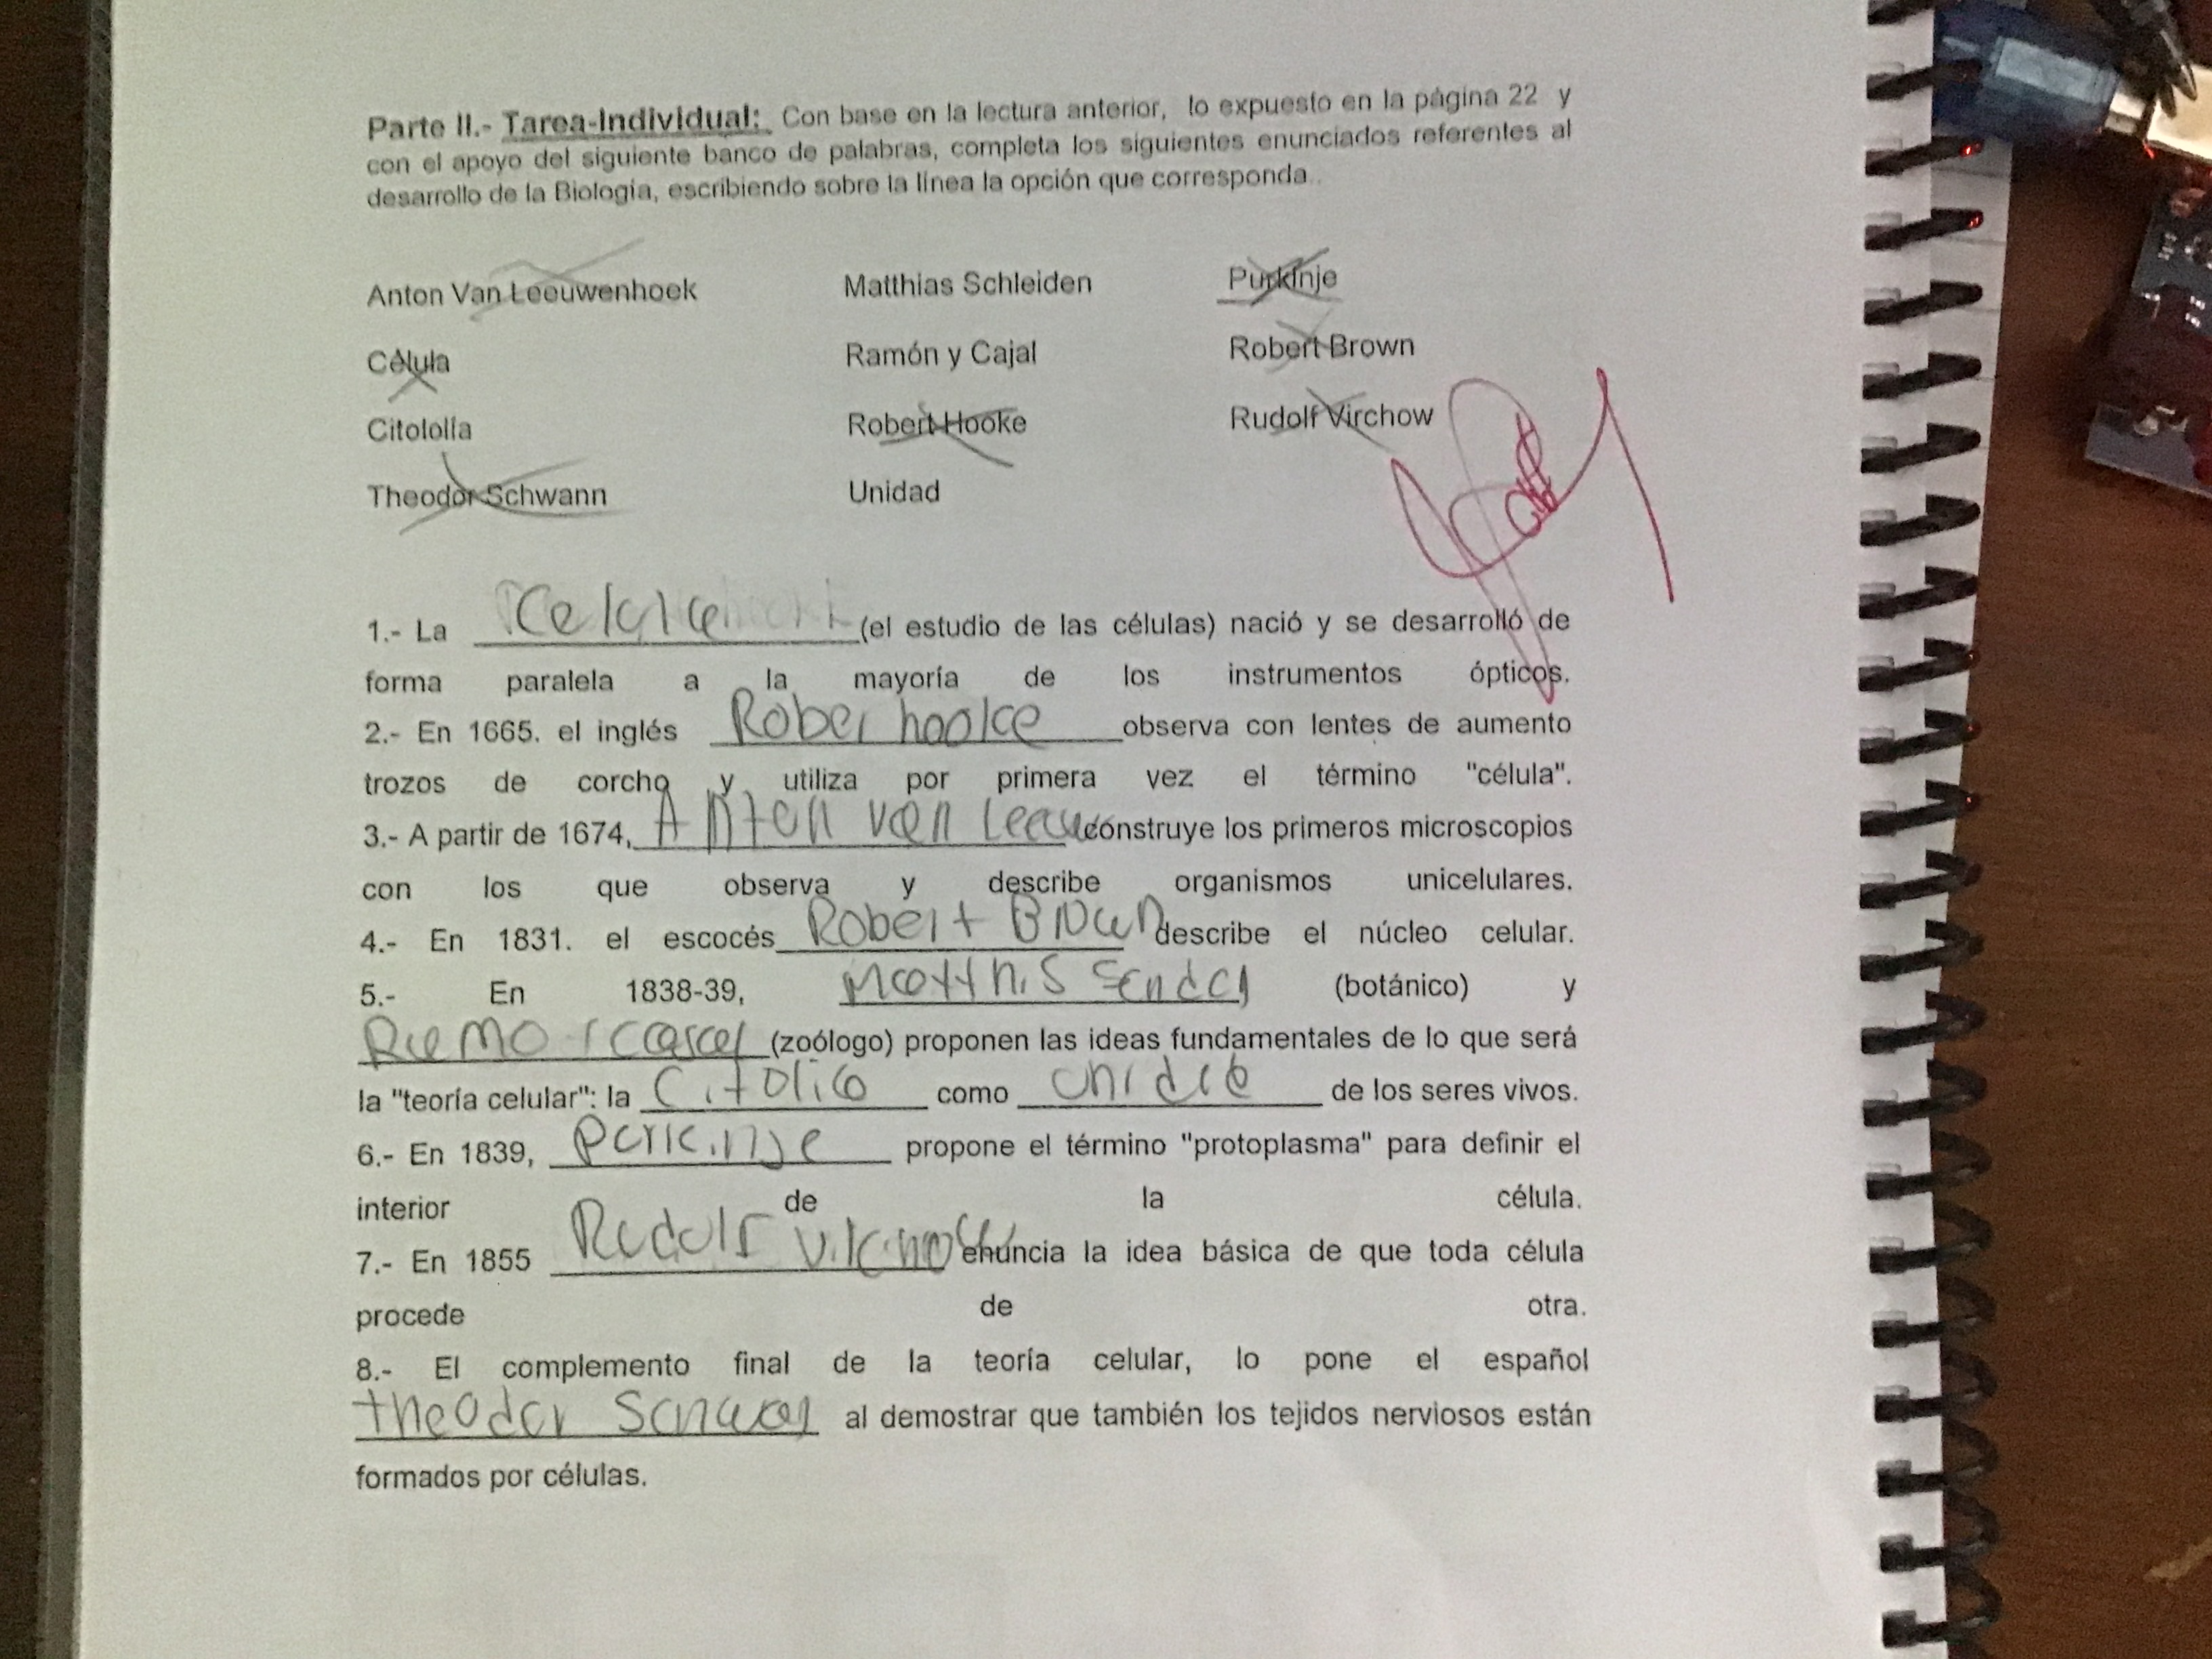 Parte II.- Tarea-Individual: Con base en la lectura anterior, lo expuesto en la página 22 y
con el apoyo del siguiente banco de palabras, completa los siguientes enunciados referentes al
desarrollo de la Biología, escribiendo sobre la línea la opción que corresponda.
Anton Van Leeuwenhoek Matthias Schleiden Purkinje
Célula Ramón y Cajal Robert Brown
Citololía Robert Hooke Rudolf Virchow
Theodor Schwann Unidad
1.- La (el estudio de las células) nació y se desarrolló de
forma paralela a la mayoría de los instrumentos ópticos.
2.- En 1665. el inglés Rober hooke observa con lentes de aumento
trozos de corcho y utiliza por primera vez el término "célula".
3.- A partir de 1674, Anton van Leeuw construye los primeros microscopios
con los que observa y describe organismos unicelulares.
4.- En 1831. el escocés Robert Brown describe el núcleo celular.
5.- En 1838-39, (botánico) y
(zoólogo) proponen las ideas fundamentales de lo que será
la "teoría celular": la Citolia como de los seres vivos.
6.- En 1839, Purkinje propone el término "protoplasma" para definir el
interior de la célula.
7.- En 1855 Rudolf enuncia la idea básica de que toda célula
procede de otra.
8.- El complemento final de la teoría celular, lo pone el español
theodor al demostrar que también los tejidos nerviosos están
formados por células.